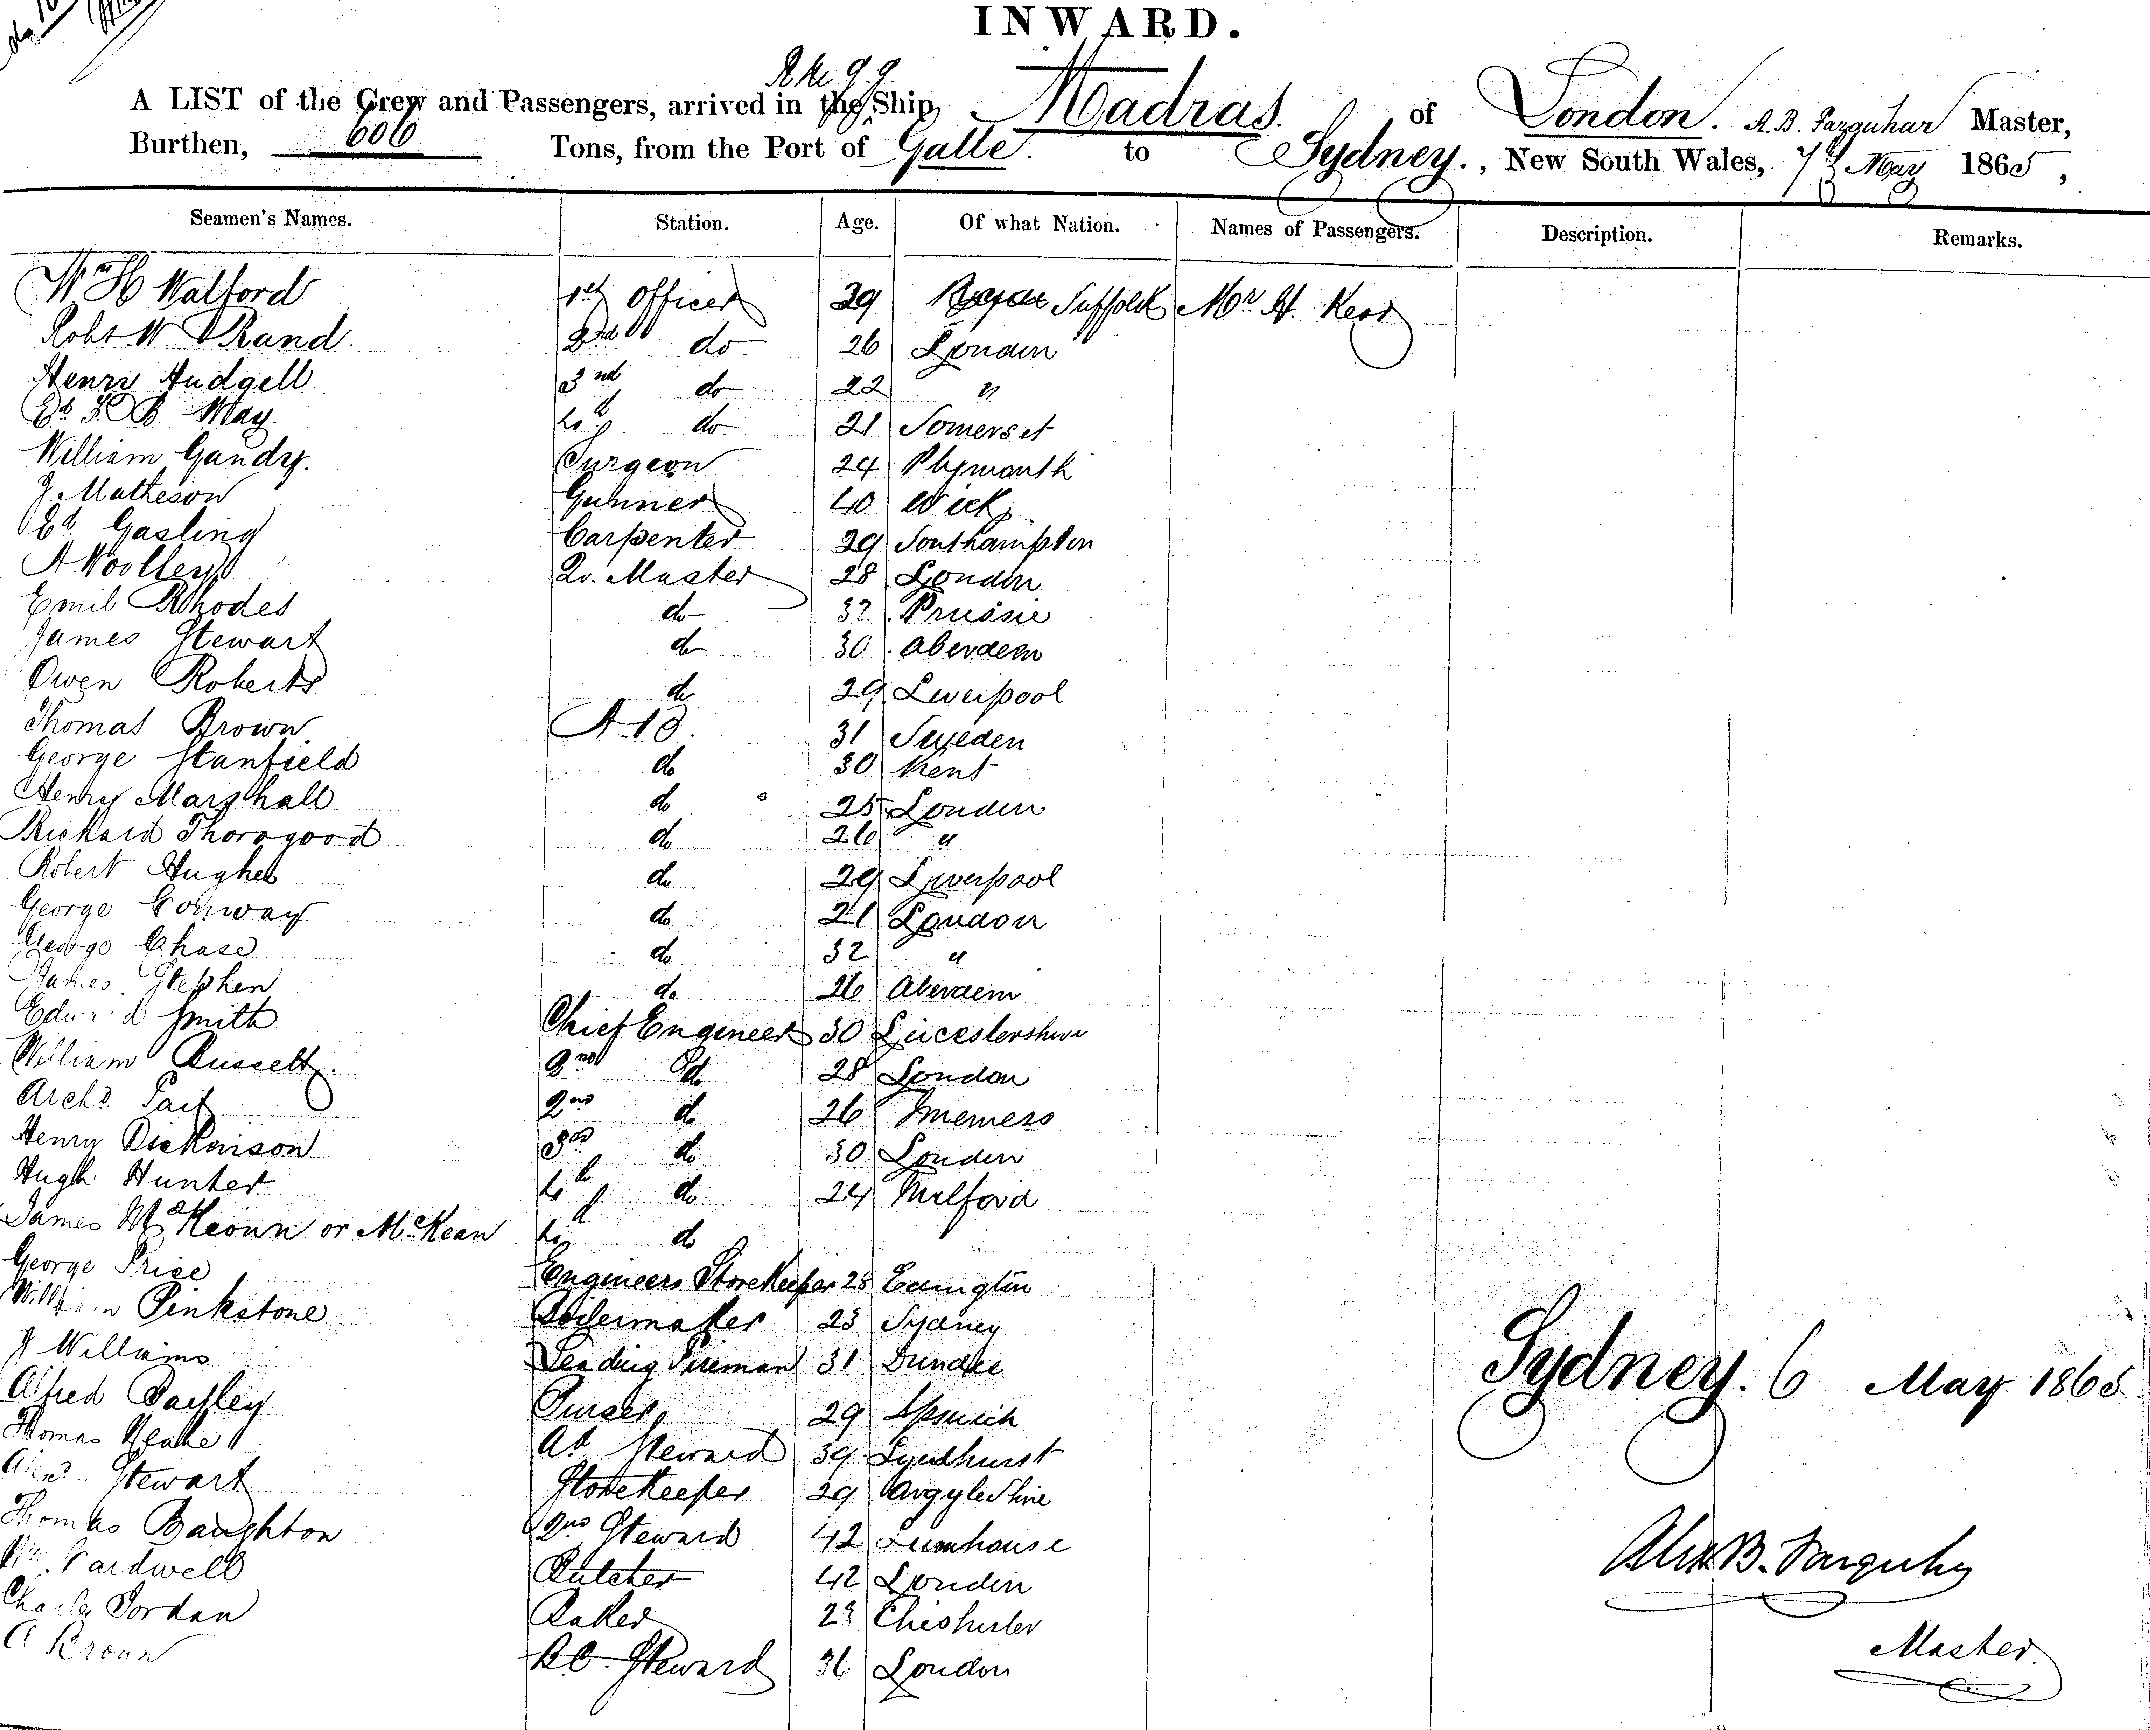 INWARD.
A LIST of the Crew and Passengers, arrived in the Ship, Madras. of London. A. B. Farquhar Master,
Burthen, 606 Tons, from the Port of Galle. to Sydney., New South Wales, 7th May 1865,
Seamen's Names. Station. Age. Of what Nation. Names of Passengers. Description. Remarks.
Wm H Walford 1st Officer 29 Suffolk Mr H. Kerr
Robt W Brand 2nd do 26 London
Henry Hudgell 3rd do 22 "
Ed. B May 4th do 21 Somerset
William Gandy. Surgeon 24 Plymouth
J. Matheson Gunner 40 Wick
Ed Gasling Carpenter 29 Southampton
A Woolley Qr. Master 28 London
Emil Rhodes do 32 Prussia
James Stewart do 30 Aberdeen
Owen Roberts do 29 Liverpool
Thomas Brown A.B. 31 Sweden
George Stanfield do 30 Kent
Henry Marshall do 25 London
Richard Thorogood do 26 "
Robert Hughes do 29 Liverpool
George Conway do 21 London
George Chase do 32 "
James Stephen do 26 Aberdeen
Edward Smith Chief Engineer 30 Leicestershire
William Russell 2nd do 28 London
Archd. Tait 2nd do 26 Inverness
Henry Dickenson 3rd do 30 London
Hugh Hunter 4th do 24 Milford
James McKeoun or McKean 4th do
George Price Engineers Storekeeper 28
William Pinkstone Boilermaker 23 Sydney
J Williams Leading Fireman 31 Dundee
Alfred Purser 29 Ipswich
Thomas Steward 39 Lyndhurst
Alexr Stewart Storekeeper 29 Argyleshire
Thomas Baughton 2nd Steward 42 Limehouse
Wm. Cardwell Butcher 42 London
Charles Jordan Baker 23 Chichester
A Brown Steward 36 London
Sydney. 6 May 1865
Alex. B. Farquhar
Master.